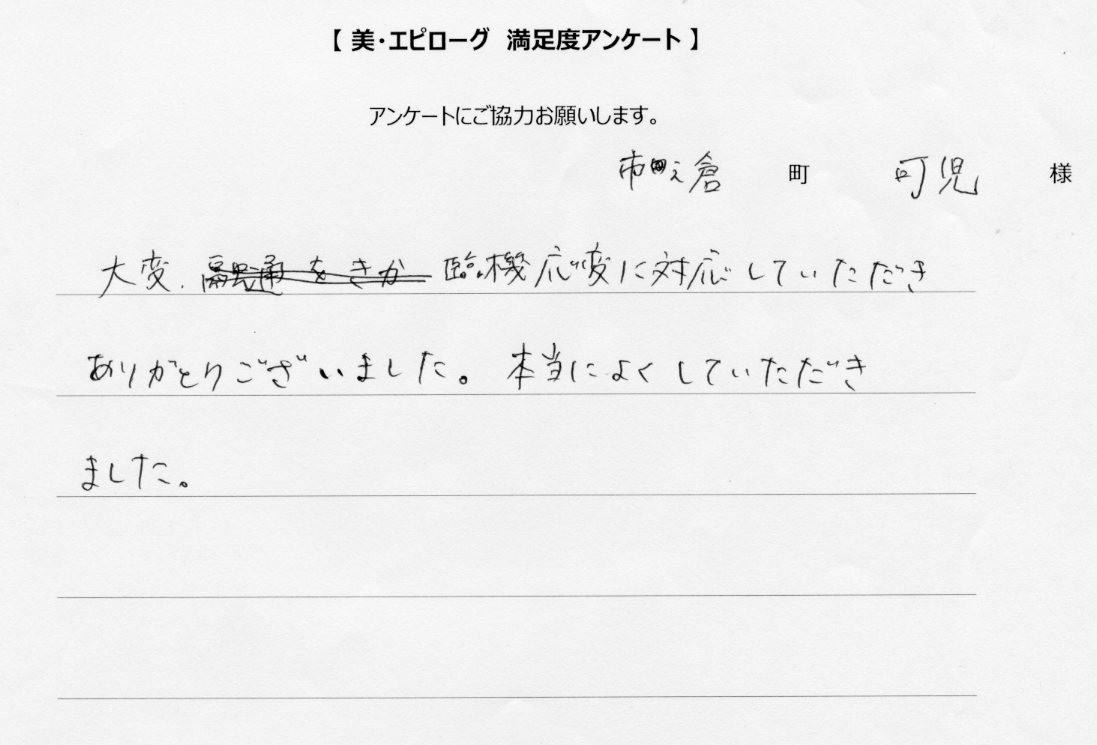 【 美・エピローグ 満足度アンケート 】
アンケートにご協力お願いします。
市之倉 町 可児 様
大変、融通をきか 臨機応変に対応していただき
ありがとうございました。本当によくしていただき
ました。